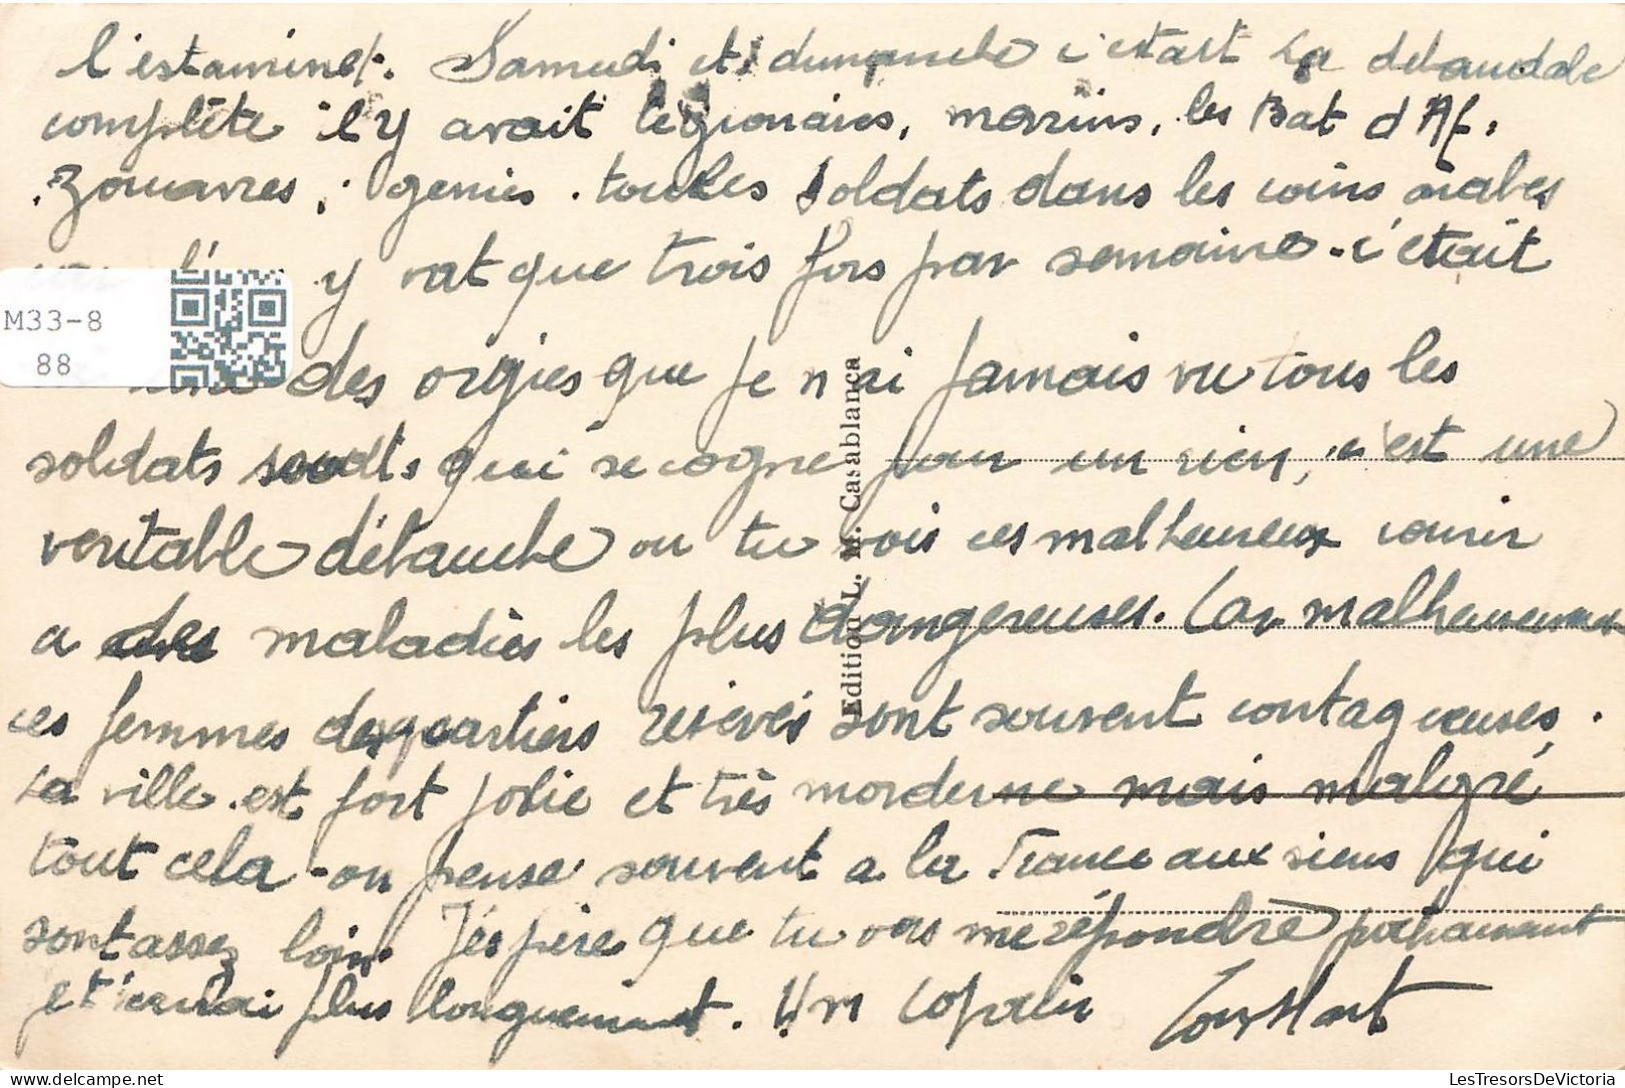 l'estaminet. Samedi et dimanche c'était la débandade
complète il y avait légionaires, marins, les Bat d'Af.
Zouaves, génies. tous les soldats dans les coins arabes
y vat que trois fois par semaine. c'était
des orgies que je n'ai jamais vu tous les
soldats soudts qui se cogne pour un rien, c'est une
veritable débauche ou tu vois ces malheureux courir
a des maladies les plus dangereuses. Car malheureusement
ces femmes des quartiers réservés sont souvent contagieuses.
La ville est fort jolie et très morderne mais malgré
tout cela on pense souvent a la France aux siens qui
sont assez loin. J'éspère que tu vas me répondre prochainement
et t'ecrirai plus longuement. Un copain Constant
Edition L. M. Casablanca
M33-8
88
LesTresorsDeVictoria